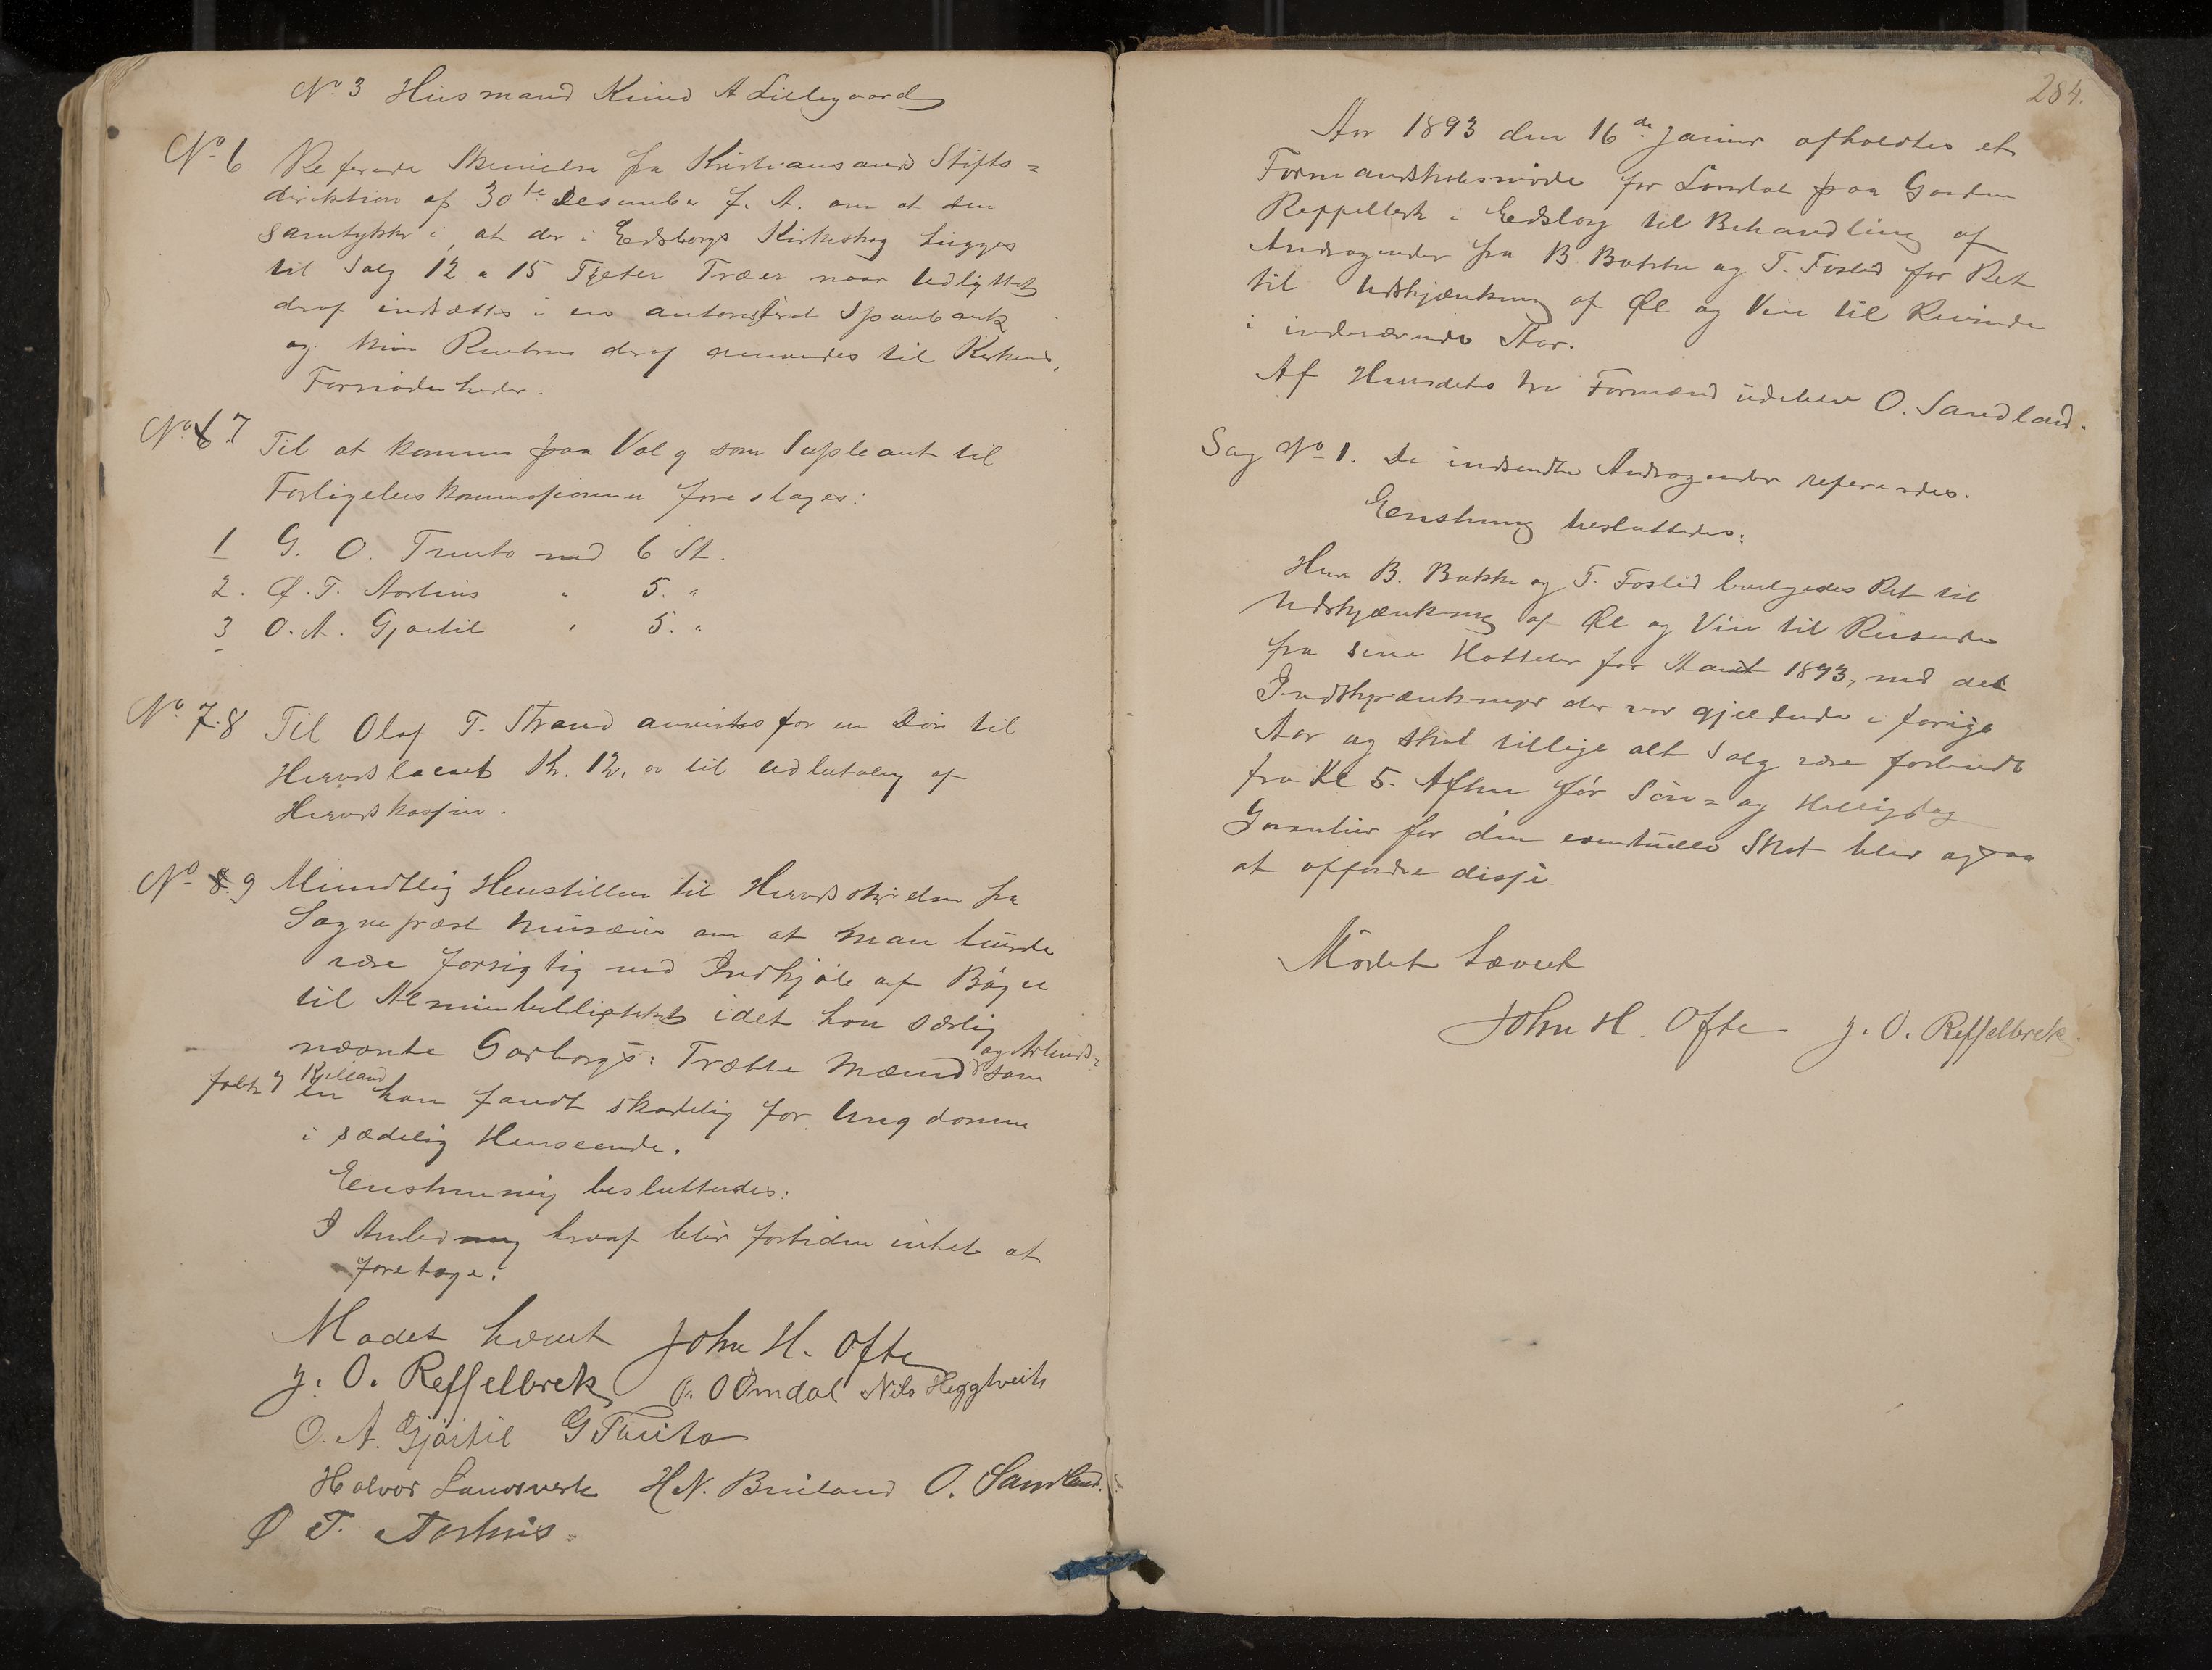 No 3 Husmand Knud A Lillegaard
No 6 Referede Skrivelse fra Kristiansands Stifts=
direktion af 30te Desember f. A. om at den
samtykker i, at der i Eidsborgs Kirkeskog hugges
til Salg 12 a 15 Tylter Træer naar Udbyttet
deraf indsættes i en autoriseret Sparebank
og kun Renterne deraf anvendes til Kirkens
Fornødenheder.
No 6 7 Til at komme paa Valg som Supleant til
Forligelseskommissionen foreslages:
1 G. O. Tveito med 6 St.
2. Ø. T. Nordnis " 5. "
3 O. A. Gjøitil " 5. "
No 7. 8 Til Olaf T. Strand anvistes for en Dør til
Herredslocalet Kr. 12,00 til Udbetaling af
Herredskassen.
No 8. 9 Mundtlig Henstillen til Herredsstyrelsen fra
Sognepræst Musæus om at man burde
være forsigtig med Indkjøb af Bøger
til Almuebibliotheket idet han særlig
nævnte Garborgs: Trætte Mænd og Arbeids=
folk af Kielland som
en han fandt skadelig for Ungdommen
i sædelig Henseende.
Eenstemmig besluttedes:
I Anledning heraf blir fortiden intet at
foretage.
Mødet hævet John H. Ofte
J. O. Reppelbrek O. O Omdal Nils Heggtveit
O. A. Gjøitil G Tveito
Halvor Landsverk H. N. Bruland O. Sandland.
Ø T. Nordnis
284.
Aar 1893 den 16de Januar afholdtes et
Formandskabsmøde for Laurdal paa Gaarden
Reppelbrek i Eidsborg til Behandling af
Andragender fra B. Bakke og T. Foslid for Ret
til Udskjænkning af Øl og Vin til Reisende
i indeværende Aar.
Af Herredets tre Formænd udeblev O. Sandland.
Sag No 1. De indsendte Andragender refereredes.
Eenstemmig besluttedes:
Herr B. Bakke og T. Foslid bevilgedes Ret til
Udskjænkning af Øl og Vin til Reisende
fra sine Hotteler for Aaret 1893, med de
Indskrænkninger der var gjældende i forrige
Aar og skal tillige alt Salg være forbudt
fra Kl 5. Aften før Søn= og Helligdag
Garantier for den eventuelle Skat blir ogsaa
at affordre disse
Mødet hævet
John H. Ofte J. O. Reppelbrek